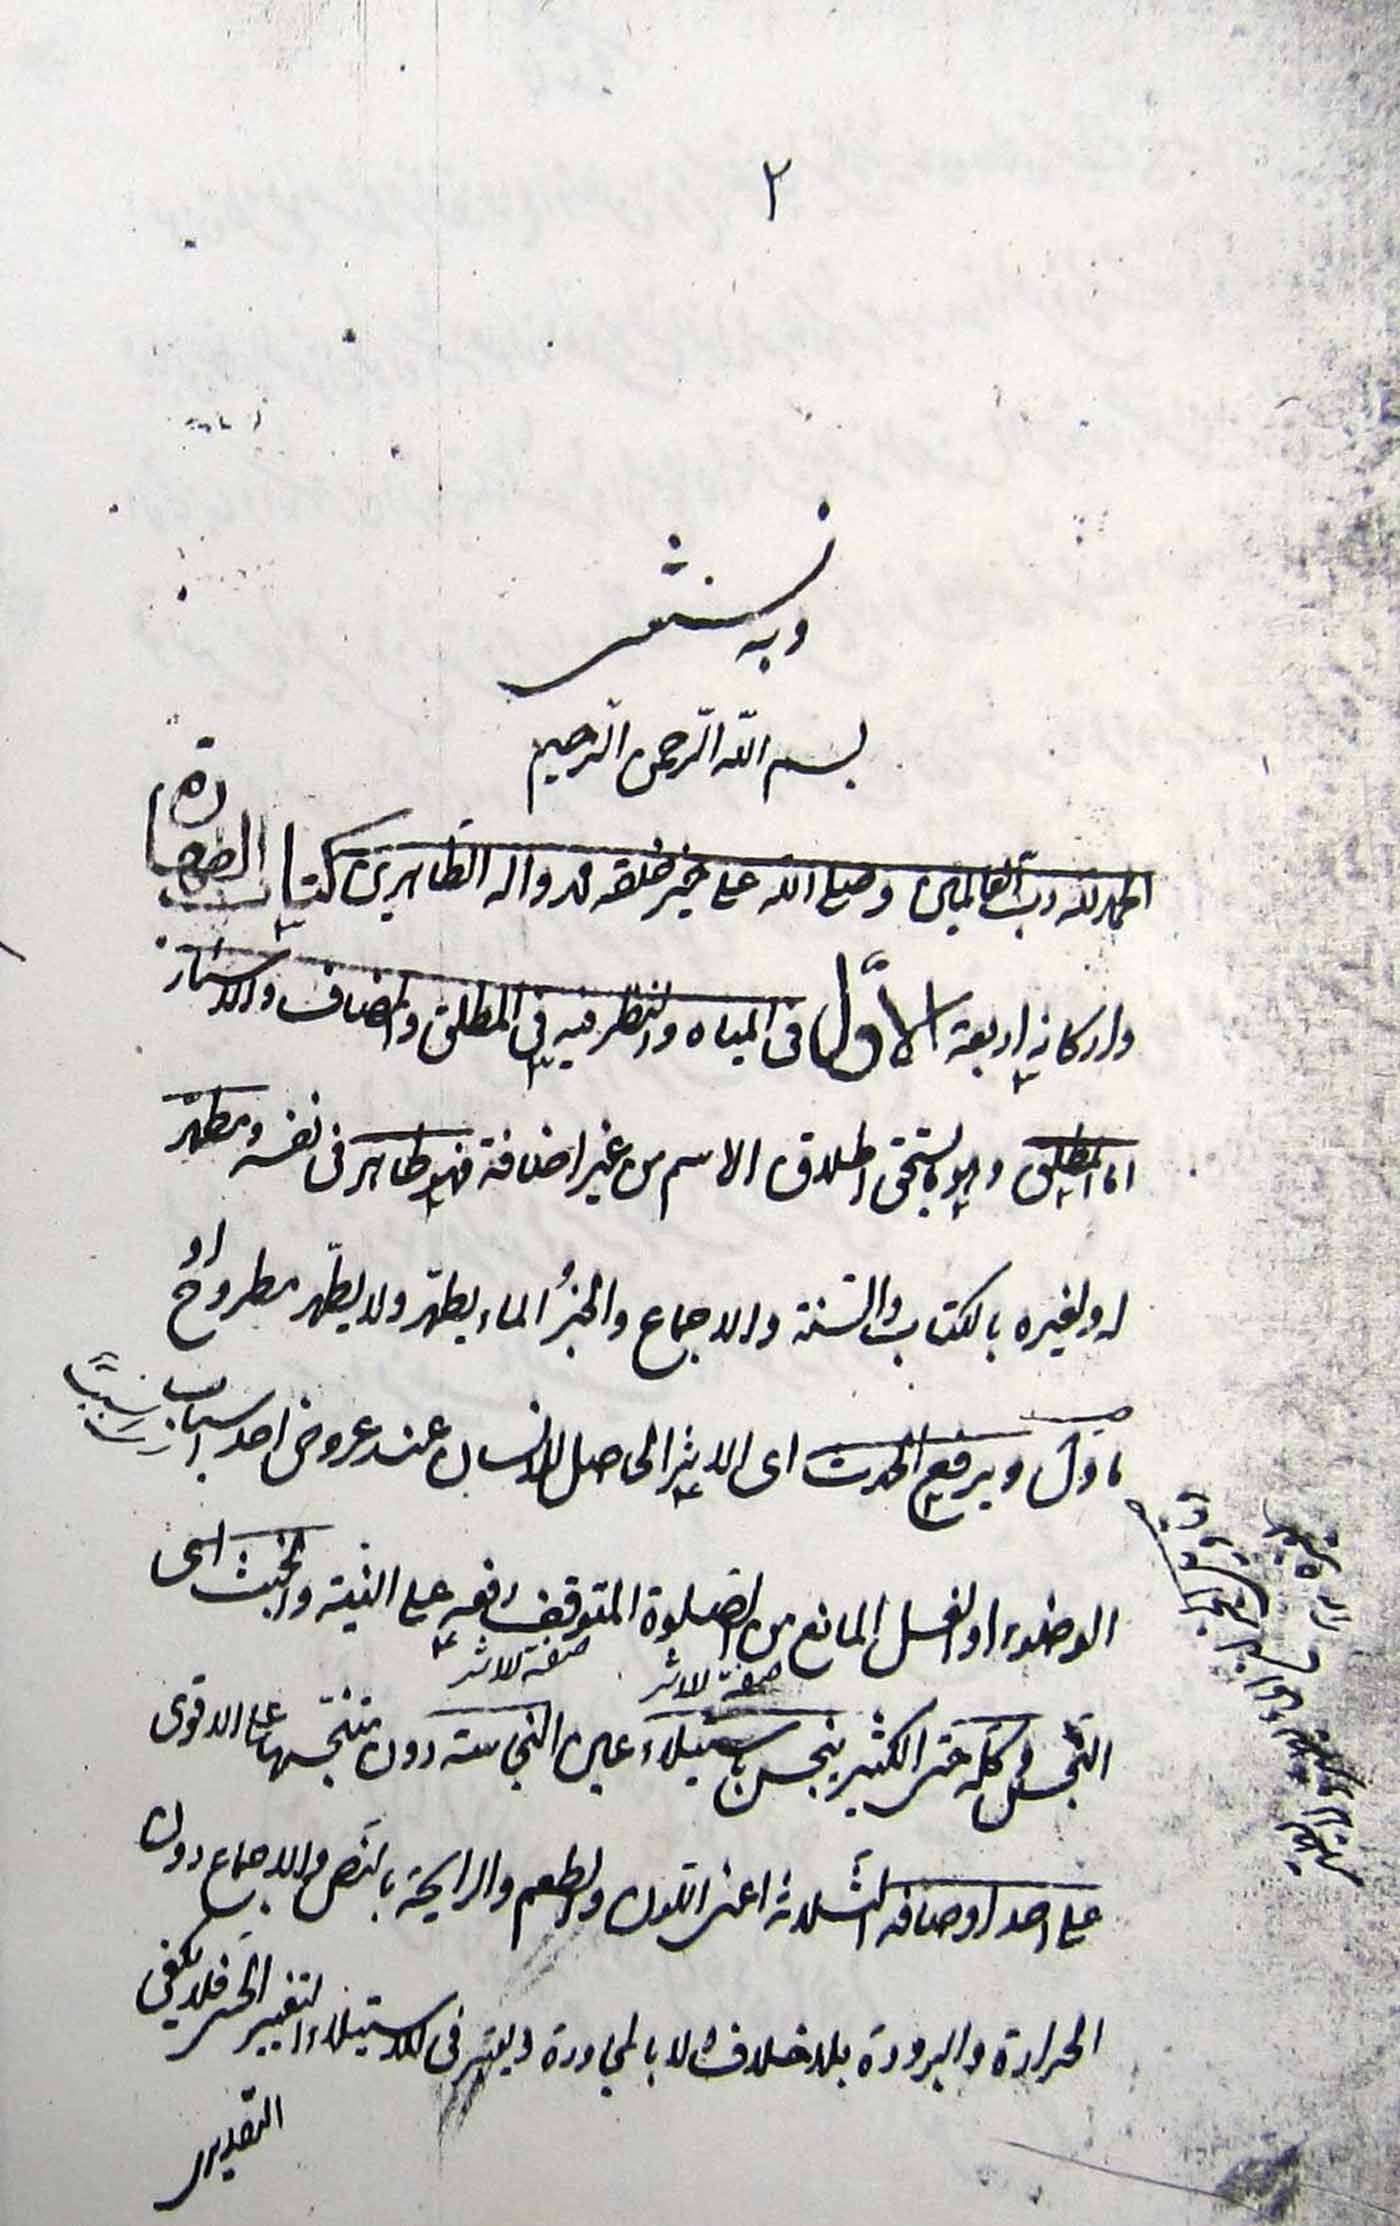 ٢
وبه نستعين
بسم الله الرّحمن الرّحيم
الحمد لله ربّ العالمين وصلى الله على خير خلقه محمد واله الطّاهرين كتاب الطهارة
واركانه اربعة الاوّل فى المياه والنظر فيه فى المطلق والمضاف والاسئار
اما المطلق وهو ما يستحق اطلاق الاسم من غير اضافة فهو طاهر فى نفسه ومطهر
له ولغيره بالكتاب والسّنة والاجماع والخبر الماء يطهّر ولا يطهّر مطروح او
ماوّل ويرفع الحدث اى الاثر الحاصل للانسان عند عروض احد اسباب
الوضوء او الغسل المانع من الصّلوة المتوقف رفعه على النيّة والخبث اى
صفة للاثر صفة للاثر
النّجس وكلّه حتى الكثير ينجس باستيلاء عين النجاسة دون متنجّسها على الاقوى
على احد اوصافه الثّلاثة اعنى اللون والطعم والرايحة بالنّص والاجماع دون
الحرارة والبرودة بلا خلاف لا بالمجاورة ويعتبر فى الاستيلاء التغيير الحسّى فلا يكفى
التقديرى